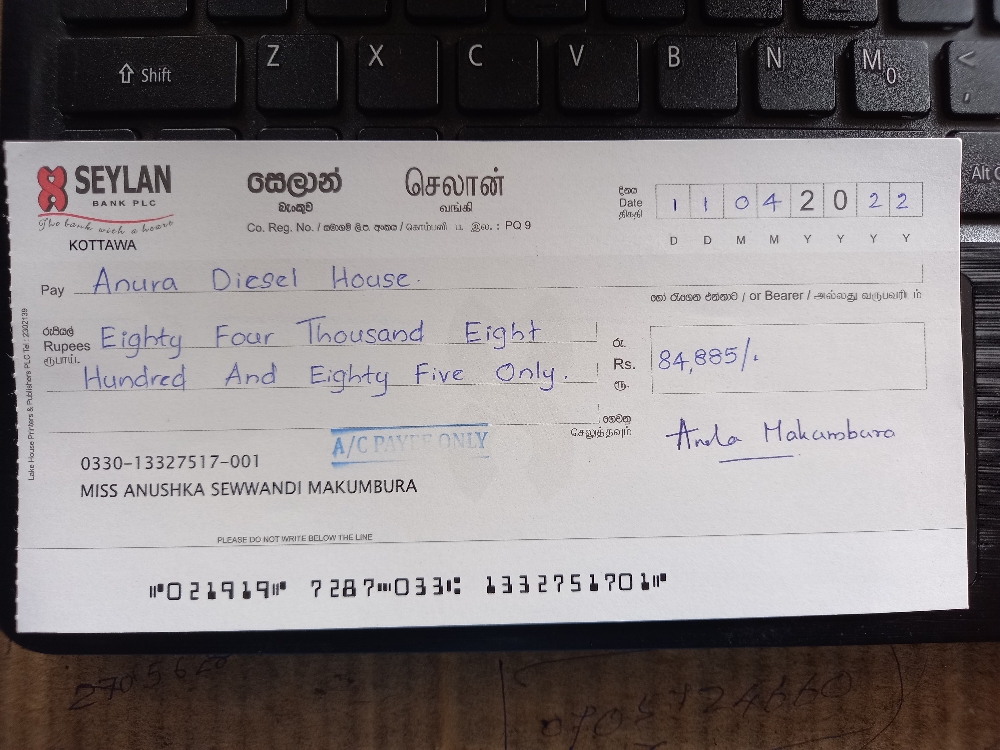 ⇧ Shift Z X C V B N M 0 <
Alt
SEYLAN
BANK PLC
The bank with a heart
KOTTAWA
සෙලාන්
බැංකුව
செலான்
வங்கி
Co. Reg. No. / සමාගම් ලි.ප. අංකය / கொம்பனி ப. இல. : PQ 9
දිනය
Date
திகதி
1 1 0 4 2 0 2 2
D D M M Y Y Y Y
Pay Anura Diesel House.
හෝ රැගෙන එන්නාට / or Bearer / அல்லது வருபவரிடம்
රුපියල්
Rupees
ரூபாய்
Eighty Four Thousand Eight
Hundred And Eighty Five Only.
රු.
Rs.
ரூ.
84,885/.
ගෙවන්න
செலுத்தவும்
A/C PAYEE ONLY
Makumbura
0330-13327517-001
MISS ANUSHKA SEWWANDI MAKUMBURA
Lake House Printers & Publishers PLC Tel : 2302139
PLEASE DO NOT WRITE BELOW THE LINE
⑈021919⑈ 7287⑉033⑆ 1332751701⑈